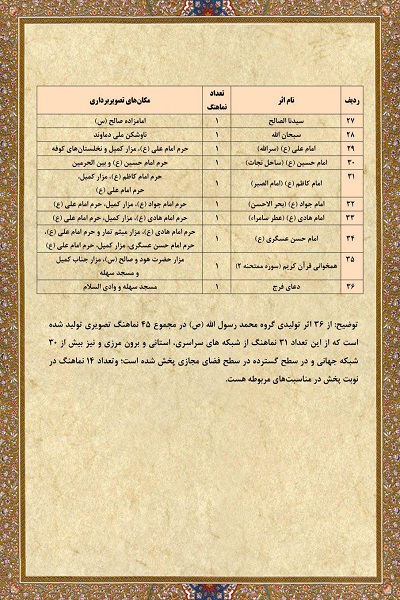 ردیف نام اثر تعداد نماهنگ مکان‌های تصویربرداری
۲۷ سیدنا الصالح ۱ امامزاده صالح (س)
۲۸ سبحان الله ۱ ناوشکن ملی دماوند
۲۹ امام علی (ع) (سرالله) ۱ حرم امام علی (ع)، مزار کمیل و نخلستان‌های کوفه
۳۰ امام حسین (ع) (ساحل نجات) ۱ حرم امام حسین (ع) و بین الحرمین
۳۱ امام کاظم (ع) (امام الصبر) ۱ حرم امام کاظم (ع)، مزار کمیل،
حرم امام علی (ع)
۳۲ امام جواد (ع) (بحر الاحسن) ۱ حرم امام جواد (ع)، مزار کمیل، حرم امام علی (ع)
۳۳ امام هادی (ع) (عطر سامراء) ۱ حرم امام هادی (ع)، مزار کمیل، حرم امام علی (ع)
۳۴ امام حسن عسگری (ع) ۱ حرم امام هادی (ع)، مزار میثم تمار و حرم امام علی (ع)،
حرم امام حسن عسگری، مزار کمیل، حرم امام علی (ع)
۳۵ همخوانی قرآن کریم (سوره ممتحنه ۲) ۱ مزار حضرت هود و صالح (س)، مزار جناب کمیل
و مسجد سهله
۳۶ دعای فرج ۱ مسجد سهله و وادی السلام
توضیح: از ۳۶ اثر تولیدی گروه محمد رسول الله (ص) در مجموع ۴۵ نماهنگ تصویری تولید شده
است که از این تعداد ۳۱ نماهنگ از شبکه های سراسری، استانی و برون مرزی و نیز بیش از ۳۰
شبکه جهانی و در سطح گسترده در سطح فضای مجازی پخش شده است؛ وتعداد ۱۴ نماهنگ در
نوبت پخش در مناسبت‌های مربوطه هست.